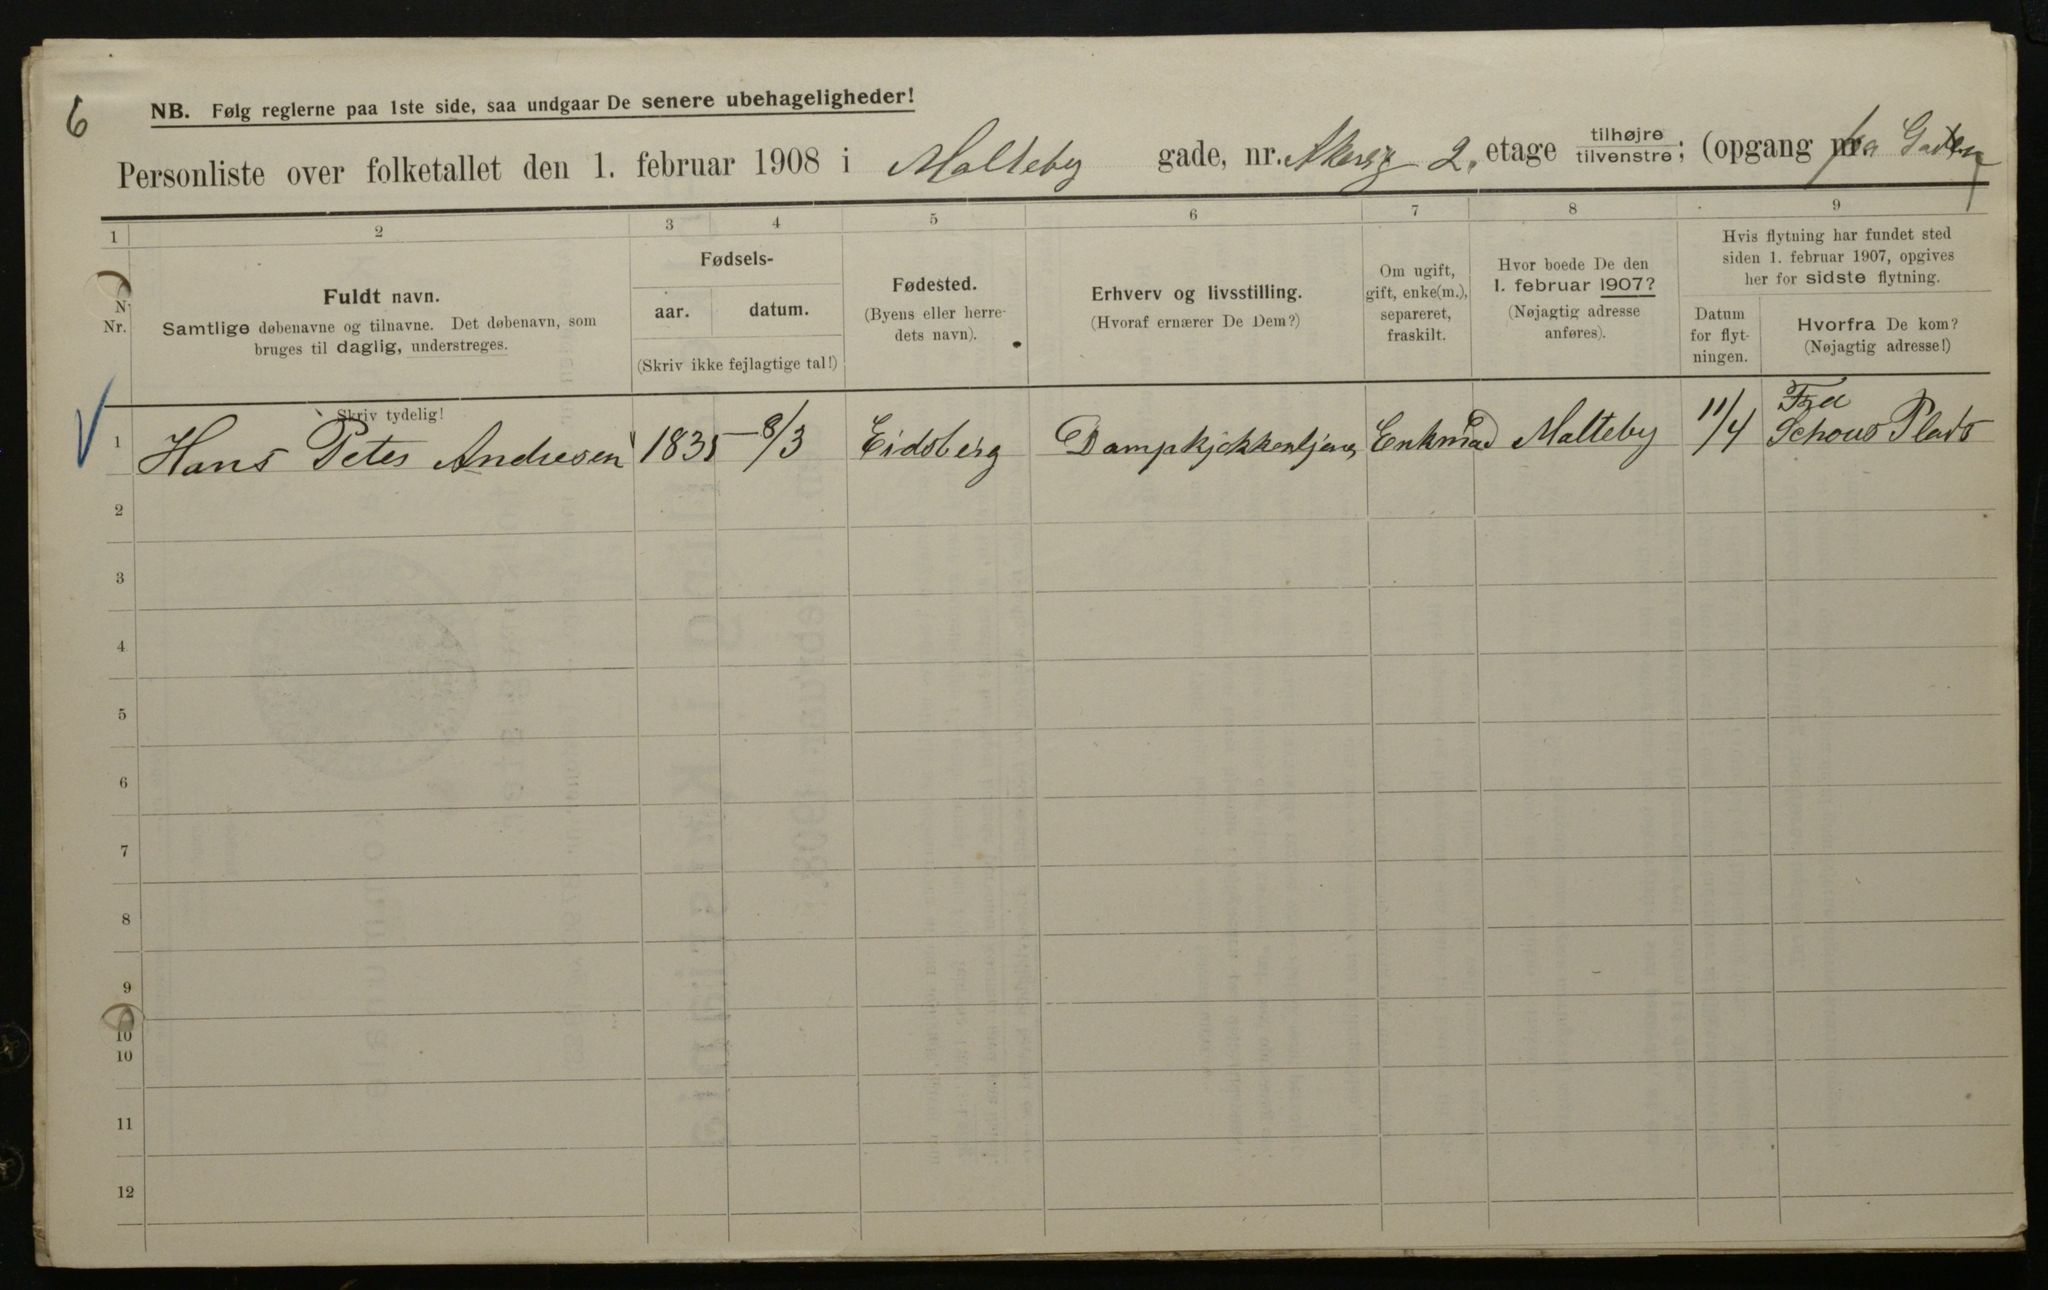 6
NB. Følg reglerne paa 1ste side, saa undgaar De senere ubehageligheder!
Personliste over folketallet den 1. februar 1908 i Malteby gade, nr. Akersg 2. etage tilhøjre tilvenstre; (opgang nr. fra Gaden
1 2 3 4 5 6 7 8 9
Nr.
Fuldt navn.
Samtlige døbenavne og tilnavne. Det døbenavn, som
bruges til daglig, understreges.
Skriv tydelig!
Fødsels-
aar. datum.
(Skriv ikke fejlagtige tal!)
Fødested.
(Byens eller herre-
dets navn).
Erhverv og livsstilling.
(Hvoraf ernærer De Dem?)
Om ugift,
gift, enke(m.),
separeret,
fraskilt.
Hvor boede De den
1. februar 1907?
(Nøjagtig adresse
anføres).
Hvis flytning har fundet sted
siden 1. februar 1907, opgives
her for sidste flytning.
Datum
for flyt-
ningen.
Hvorfra De kom?
(Nøjagtig adresse!)
1 Hans Peter Andresen 1835 8/3 Eidsberg Dampkjøkkentjener Enkmad Malteby 11/4 Fra Schous Plads
2
3
4
5
6
7
8
9
10
10
11
12